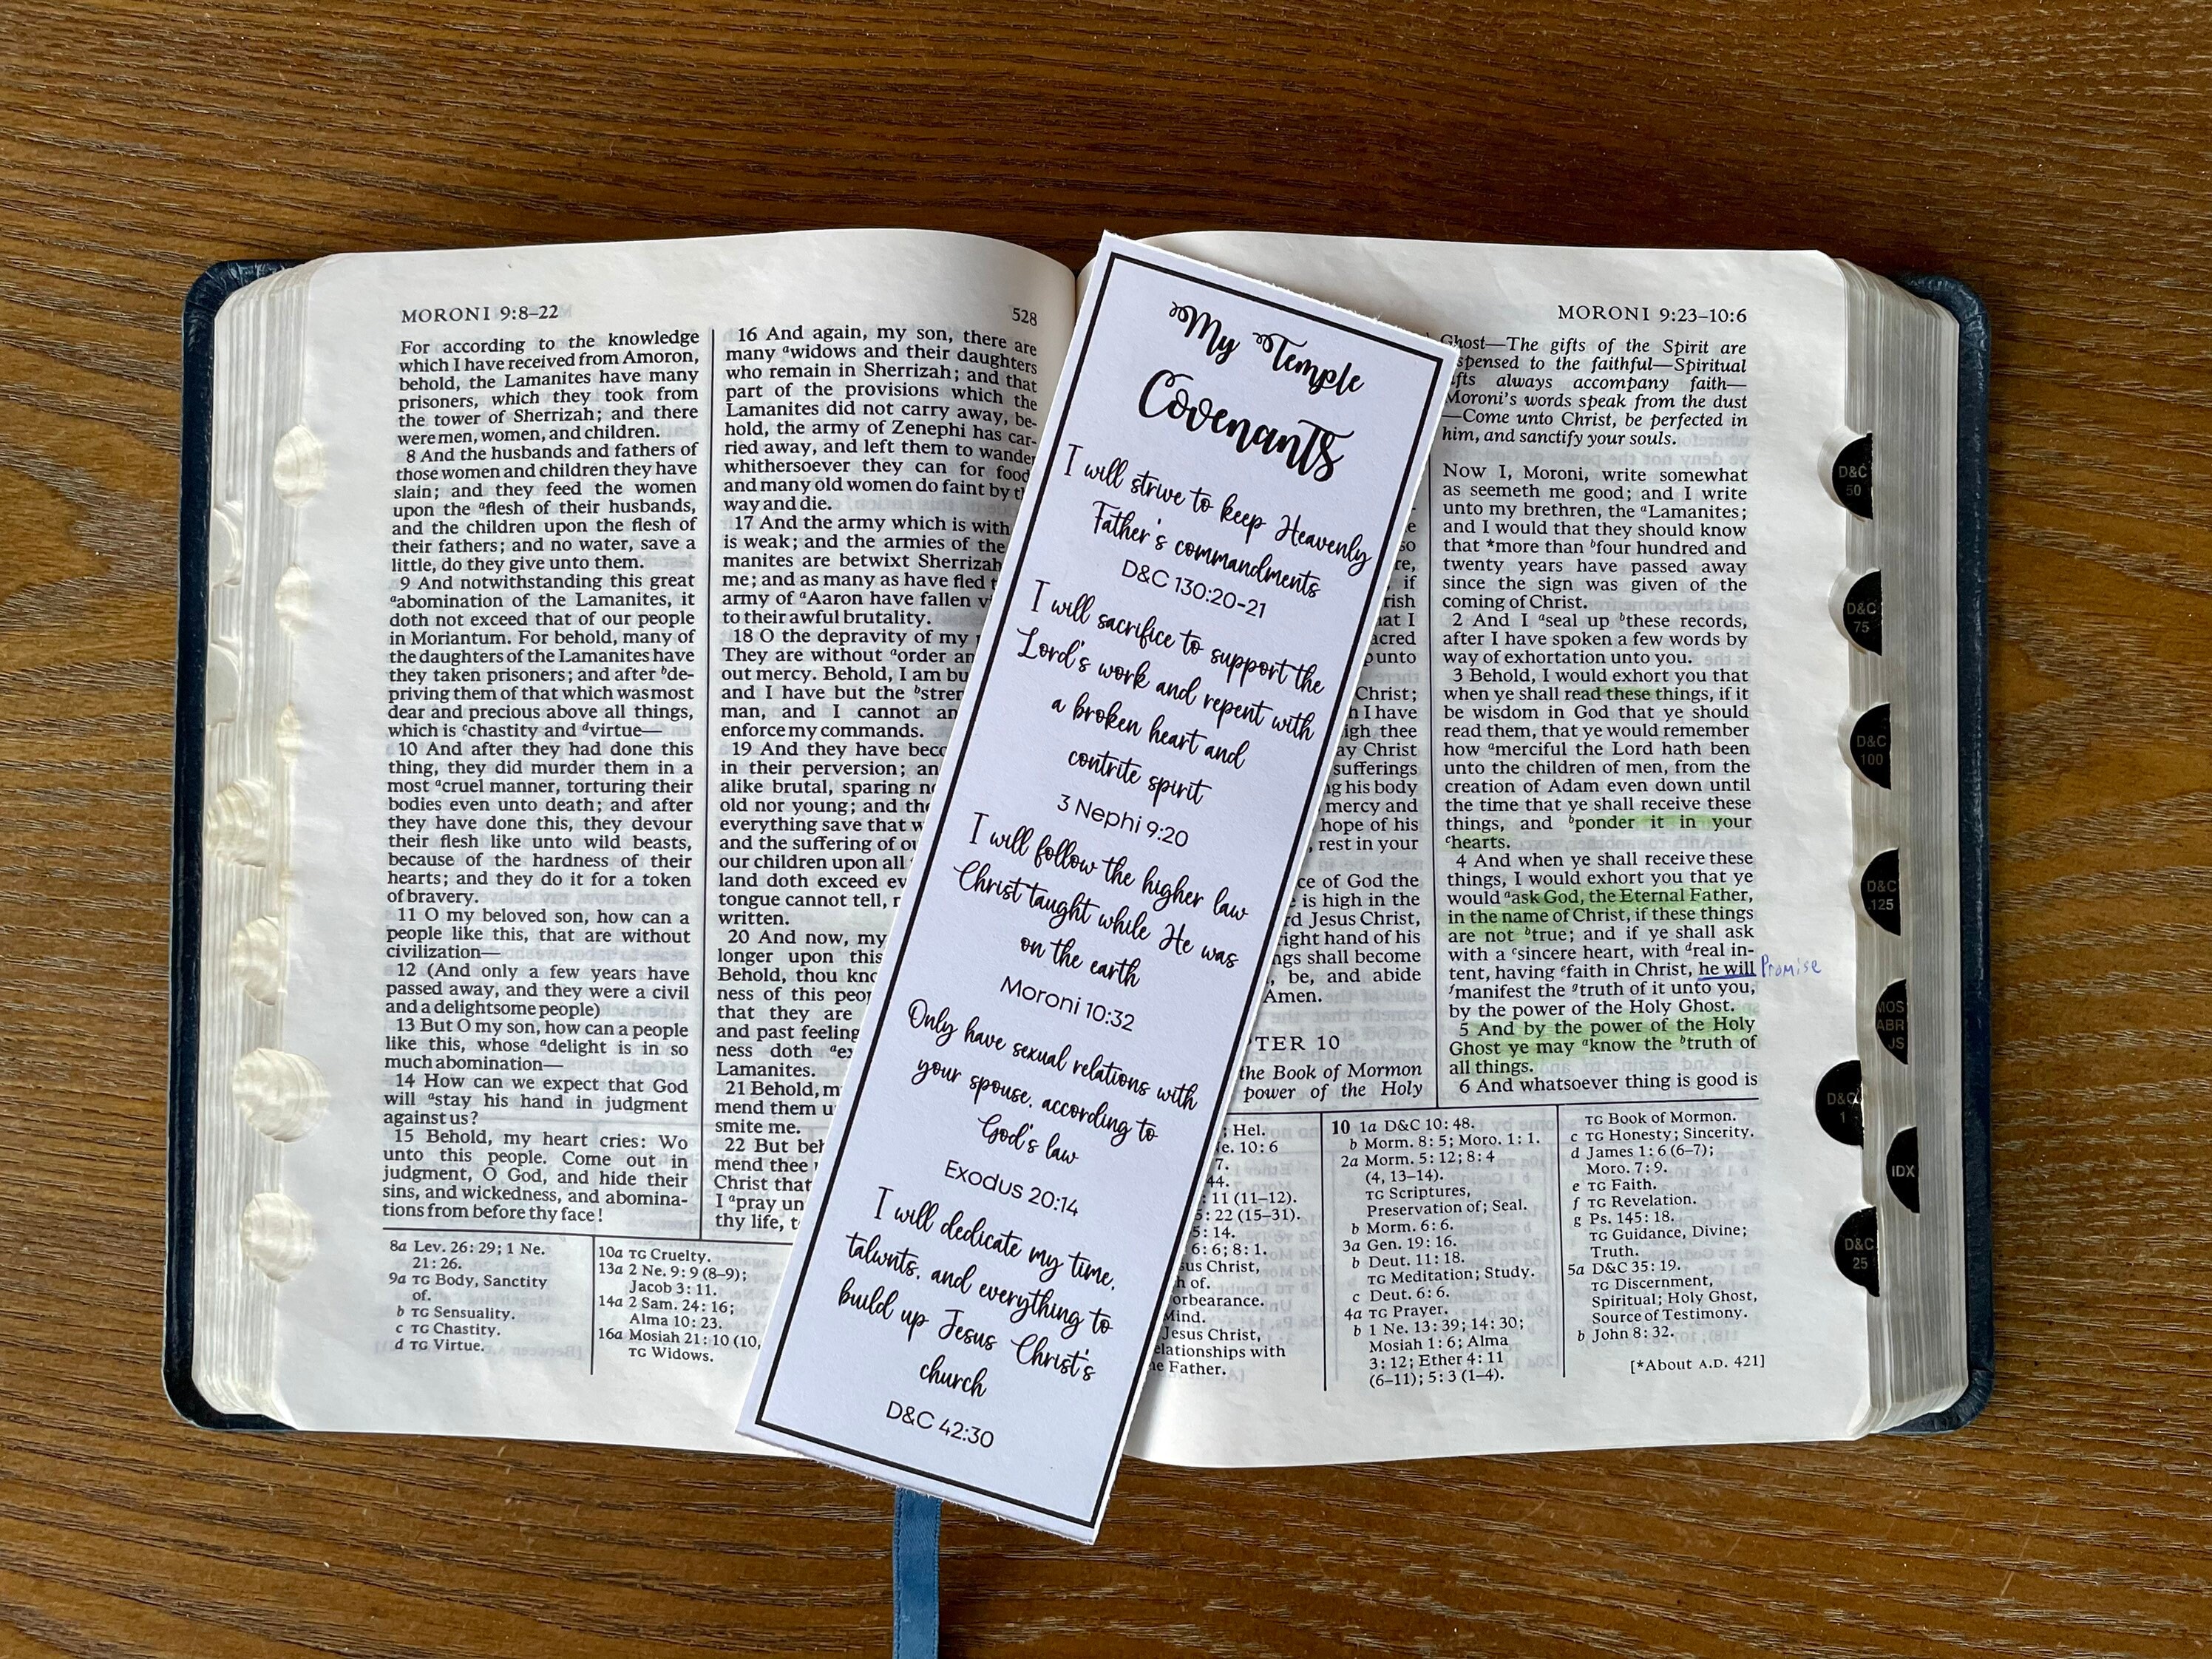 MORONI 9:8–22
528
For according to the knowledge
which I have received from Amoron,
behold, the Lamanites have many
prisoners, which they took from
the tower of Sherrizah; and there
were men, women, and children.
8 And the husbands and fathers of
those women and children they have
slain; and they feed the women
upon the aflesh of their husbands,
and the children upon the flesh of
their fathers; and no water, save a
little, do they give unto them.
9 And notwithstanding this great
aabomination of the Lamanites, it
doth not exceed that of our people
in Moriantum. For behold, many of
the daughters of the Lamanites have
they taken prisoners; and after bde-
priving them of that which was most
dear and precious above all things,
which is cchastity and dvirtue—
10 And after they had done this
thing, they did murder them in a
most acruel manner, torturing their
bodies even unto death; and after
they have done this, they devour
their flesh like unto wild beasts,
because of the hardness of their
hearts; and they do it for a token
of bravery.
11 O my beloved son, how can a
people like this, that are without
civilization—
12 (And only a few years have
passed away, and they were a civil
and a delightsome people)
13 But O my son, how can a people
like this, whose adelight is in so
much abomination—
14 How can we expect that God
will astay his hand in judgment
against us?
15 Behold, my heart cries: Wo
unto this people. Come out in
judgment, O God, and hide their
sins, and wickedness, and abomina-
tions from before thy face!
16 And again, my son, there are
many awidows and their daughters
who remain in Sherrizah; and that
part of the provisions which the
Lamanites did not carry away, be-
hold, the army of Zenephi has car-
ried away, and left them to wander
whithersoever they can for food
and many old women do faint by
way and die.
17 And the army which is with
is weak; and the armies of the
manites are betwixt Sherrizah
me; and as many as have fled
army of aAaron have fallen
to their awful brutality.
18 O the depravity of my
They are without aorder
out mercy. Behold, I am
and I have but the
man, and I cannot
enforce my commands.
19 And they have
in their perversion;
alike brutal, sparing
old nor young; and
everything save that
and the suffering of
our children upon all
land doth exceed
tongue cannot tell,
written.
20 And now, my
longer upon this
Behold, thou
ness of this
that they are
and past feeling
ness doth
Lamanites.
21 Behold,
mend them
smite me.
22 But
mend thee
Christ that
I apray
thy life,
8a Lev. 26:29; 1 Ne.
21:26.
9a TG Body, Sanctity
of.
b TG Sensuality.
c TG Chastity.
d TG Virtue.
10a TG Cruelty.
13a 2 Ne. 9:9 (8–9);
Jacob 3:11.
14a 2 Sam. 24:16;
Alma 10:23.
16a Mosiah 21:10 (10,
TG Widows.
My Temple
Covenants
I will strive to keep Heavenly
Father's commandments
D&C 130:20-21
I will sacrifice to support the
Lord's work and repent with
a broken heart and
contrite spirit
3 Nephi 9:20
I will follow the higher law
Christ taught while He was
on the earth
Moroni 10:32
Only have sexual relations with
your spouse, according to
God's law
Exodus 20:14
I will dedicate my time,
talwnts, and everything to
build up Jesus Christ's
church
D&C 42:30
MORONI 9:23–10:6
if
I
unto
Christ;
I have
thee
Christ
sufferings
his body
mercy and
hope of his
rest in your
of God the
is high in the
Jesus Christ,
hand of his
shall become
be, and abide
Amen.
10
the Book of Mormon
power of the Holy
Ghost—The gifts of the Spirit are
to the faithful—Spiritual
always accompany faith—
Moroni's words speak from the dust
—Come unto Christ, be perfected in
him, and sanctify your souls.
Now I, Moroni, write somewhat
as seemeth me good; and I write
unto my brethren, the aLamanites;
and I would that they should know
that *more than bfour hundred and
twenty years have passed away
since the sign was given of the
coming of Christ.
2 And I aseal up bthese records,
after I have spoken a few words by
way of exhortation unto you.
3 Behold, I would exhort you that
when ye shall read these things, if it
be wisdom in God that ye should
read them, that ye would remember
how amerciful the Lord hath been
unto the children of men, from the
creation of Adam even down until
the time that ye shall receive these
things, and bponder it in your
chearts.
4 And when ye shall receive these
things, I would exhort you that ye
would aask God, the Eternal Father,
in the name of Christ, if these things
are not btrue; and if ye shall ask
with a csincere heart, with dreal in-
tent, having efaith in Christ, he will Promise
fmanifest the gtruth of it unto you,
by the power of the Holy Ghost.
5 And by the power of the Holy
Ghost ye may aknow the btruth of
all things.
6 And whatsoever thing is good is
Hel.
10:6
7.
44.
11 (11–12).
22 (15–31).
5:14.
6:6; 8:1.
Christ,
of.
Mind.
Jesus Christ,
with
Father.
10 1a D&C 10:48.
b Morm. 8:5; Moro. 1:1.
2a Morm. 5:12; 8:4
(4, 13–14).
TG Scriptures,
Preservation of; Seal.
b Morm. 6:6.
3a Gen. 19:16.
b Deut. 11:18.
TG Meditation; Study.
c Deut. 6:6.
4a TG Prayer.
b 1 Ne. 13:39; 14:30;
Mosiah 1:6; Alma
3:12; Ether 4:11
(6–11); 5:3 (1–4).
TG Book of Mormon.
c TG Honesty; Sincerity.
d James 1:6 (6–7);
Moro. 7:9.
e TG Faith.
f TG Revelation.
g Ps. 145:18.
TG Guidance, Divine;
Truth.
5a D&C 35:19.
TG Discernment,
Spiritual; Holy Ghost,
Source of Testimony.
b John 8:32.
[*About A.D. 421]
D&C
50
D&C
75
D&C
100
D&C
125
MOS
ABR
JS
D&C
1
IDX
D&C
25